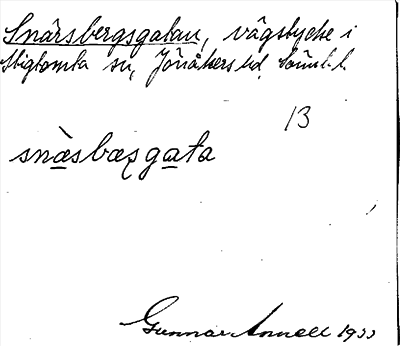 Snårsbergsgatan, vägstycke i
Stigtomta sn, Jönåkers hd, Söml.
13
snàsbaʂgata
Gunnar Annell 1933